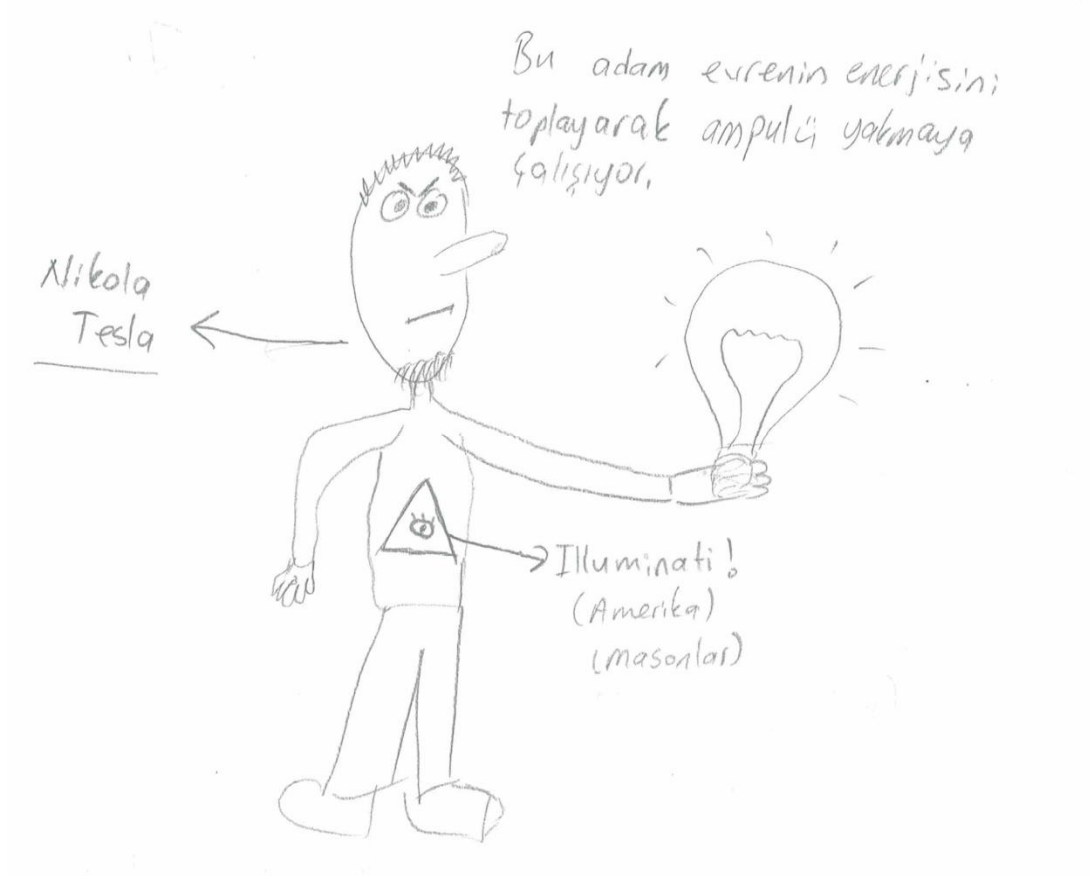 Bu adam evrenin enerjisini
toplayarak ampulü yakmaya
çalışıyor.
Nikola
Tesla
Illuminati!
(Amerika)
(masonlar)